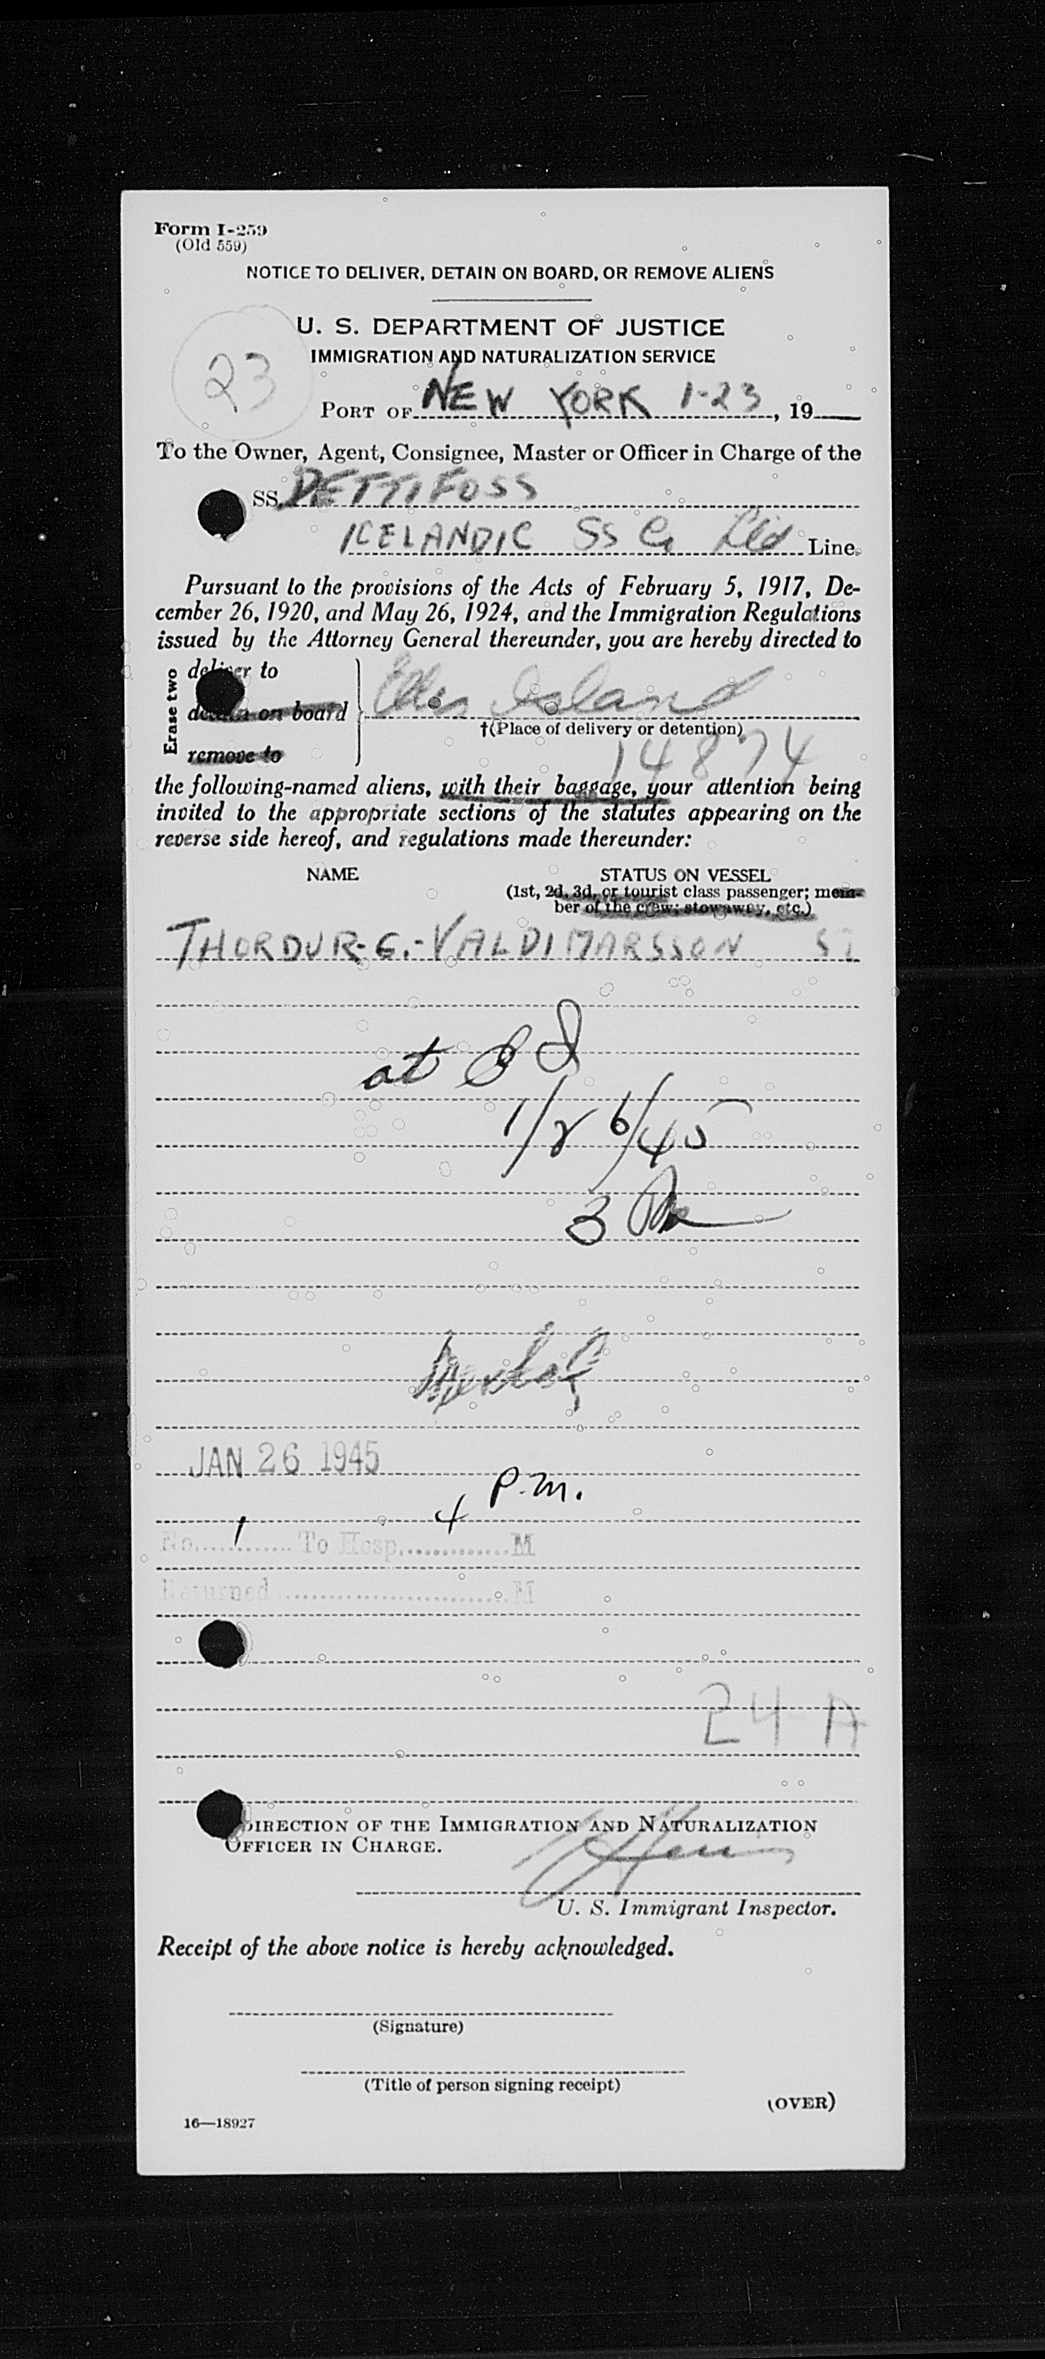 Form I-259
(Old 559)
NOTICE TO DELIVER, DETAIN ON BOARD, OR REMOVE ALIENS
U. S. DEPARTMENT OF JUSTICE
IMMIGRATION AND NATURALIZATION SERVICE
23
PORT OF NEW YORK 1-23, 19
To the Owner, Agent, Consignee, Master or Officer in Charge of the
SS. DETTIFOSS
ICELANDIC SS Co Ltd Line.
Pursuant to the provisions of the Acts of February 5, 1917, De-
cember 26, 1920, and May 26, 1924, and the Immigration Regulations
issued by the Attorney General thereunder, you are hereby directed to
Erase two
deliver to
detain on board
remove to
Ellis Island
†(Place of delivery or detention)
14874
the following-named aliens, with their baggage, your attention being
invited to the appropriate sections of the statutes appearing on the
reverse side hereof, and regulations made thereunder:
NAME STATUS ON VESSEL
(1st, 2d, 3d, or tourist class passenger; mem-
ber of the crew; stowaway, etc.)
THORDUR-G.-VALDIMARSSON
at
1/26/45
3
JAN 26 1945
4 P.M.
No. 1 To Hosp. M
Returned M
24-A
DIRECTION OF THE IMMIGRATION AND NATURALIZATION
OFFICER IN CHARGE.
U. S. Immigrant Inspector.
Receipt of the above notice is hereby acknowledged.
(Signature)
(Title of person signing receipt)
(OVER)
16—18927